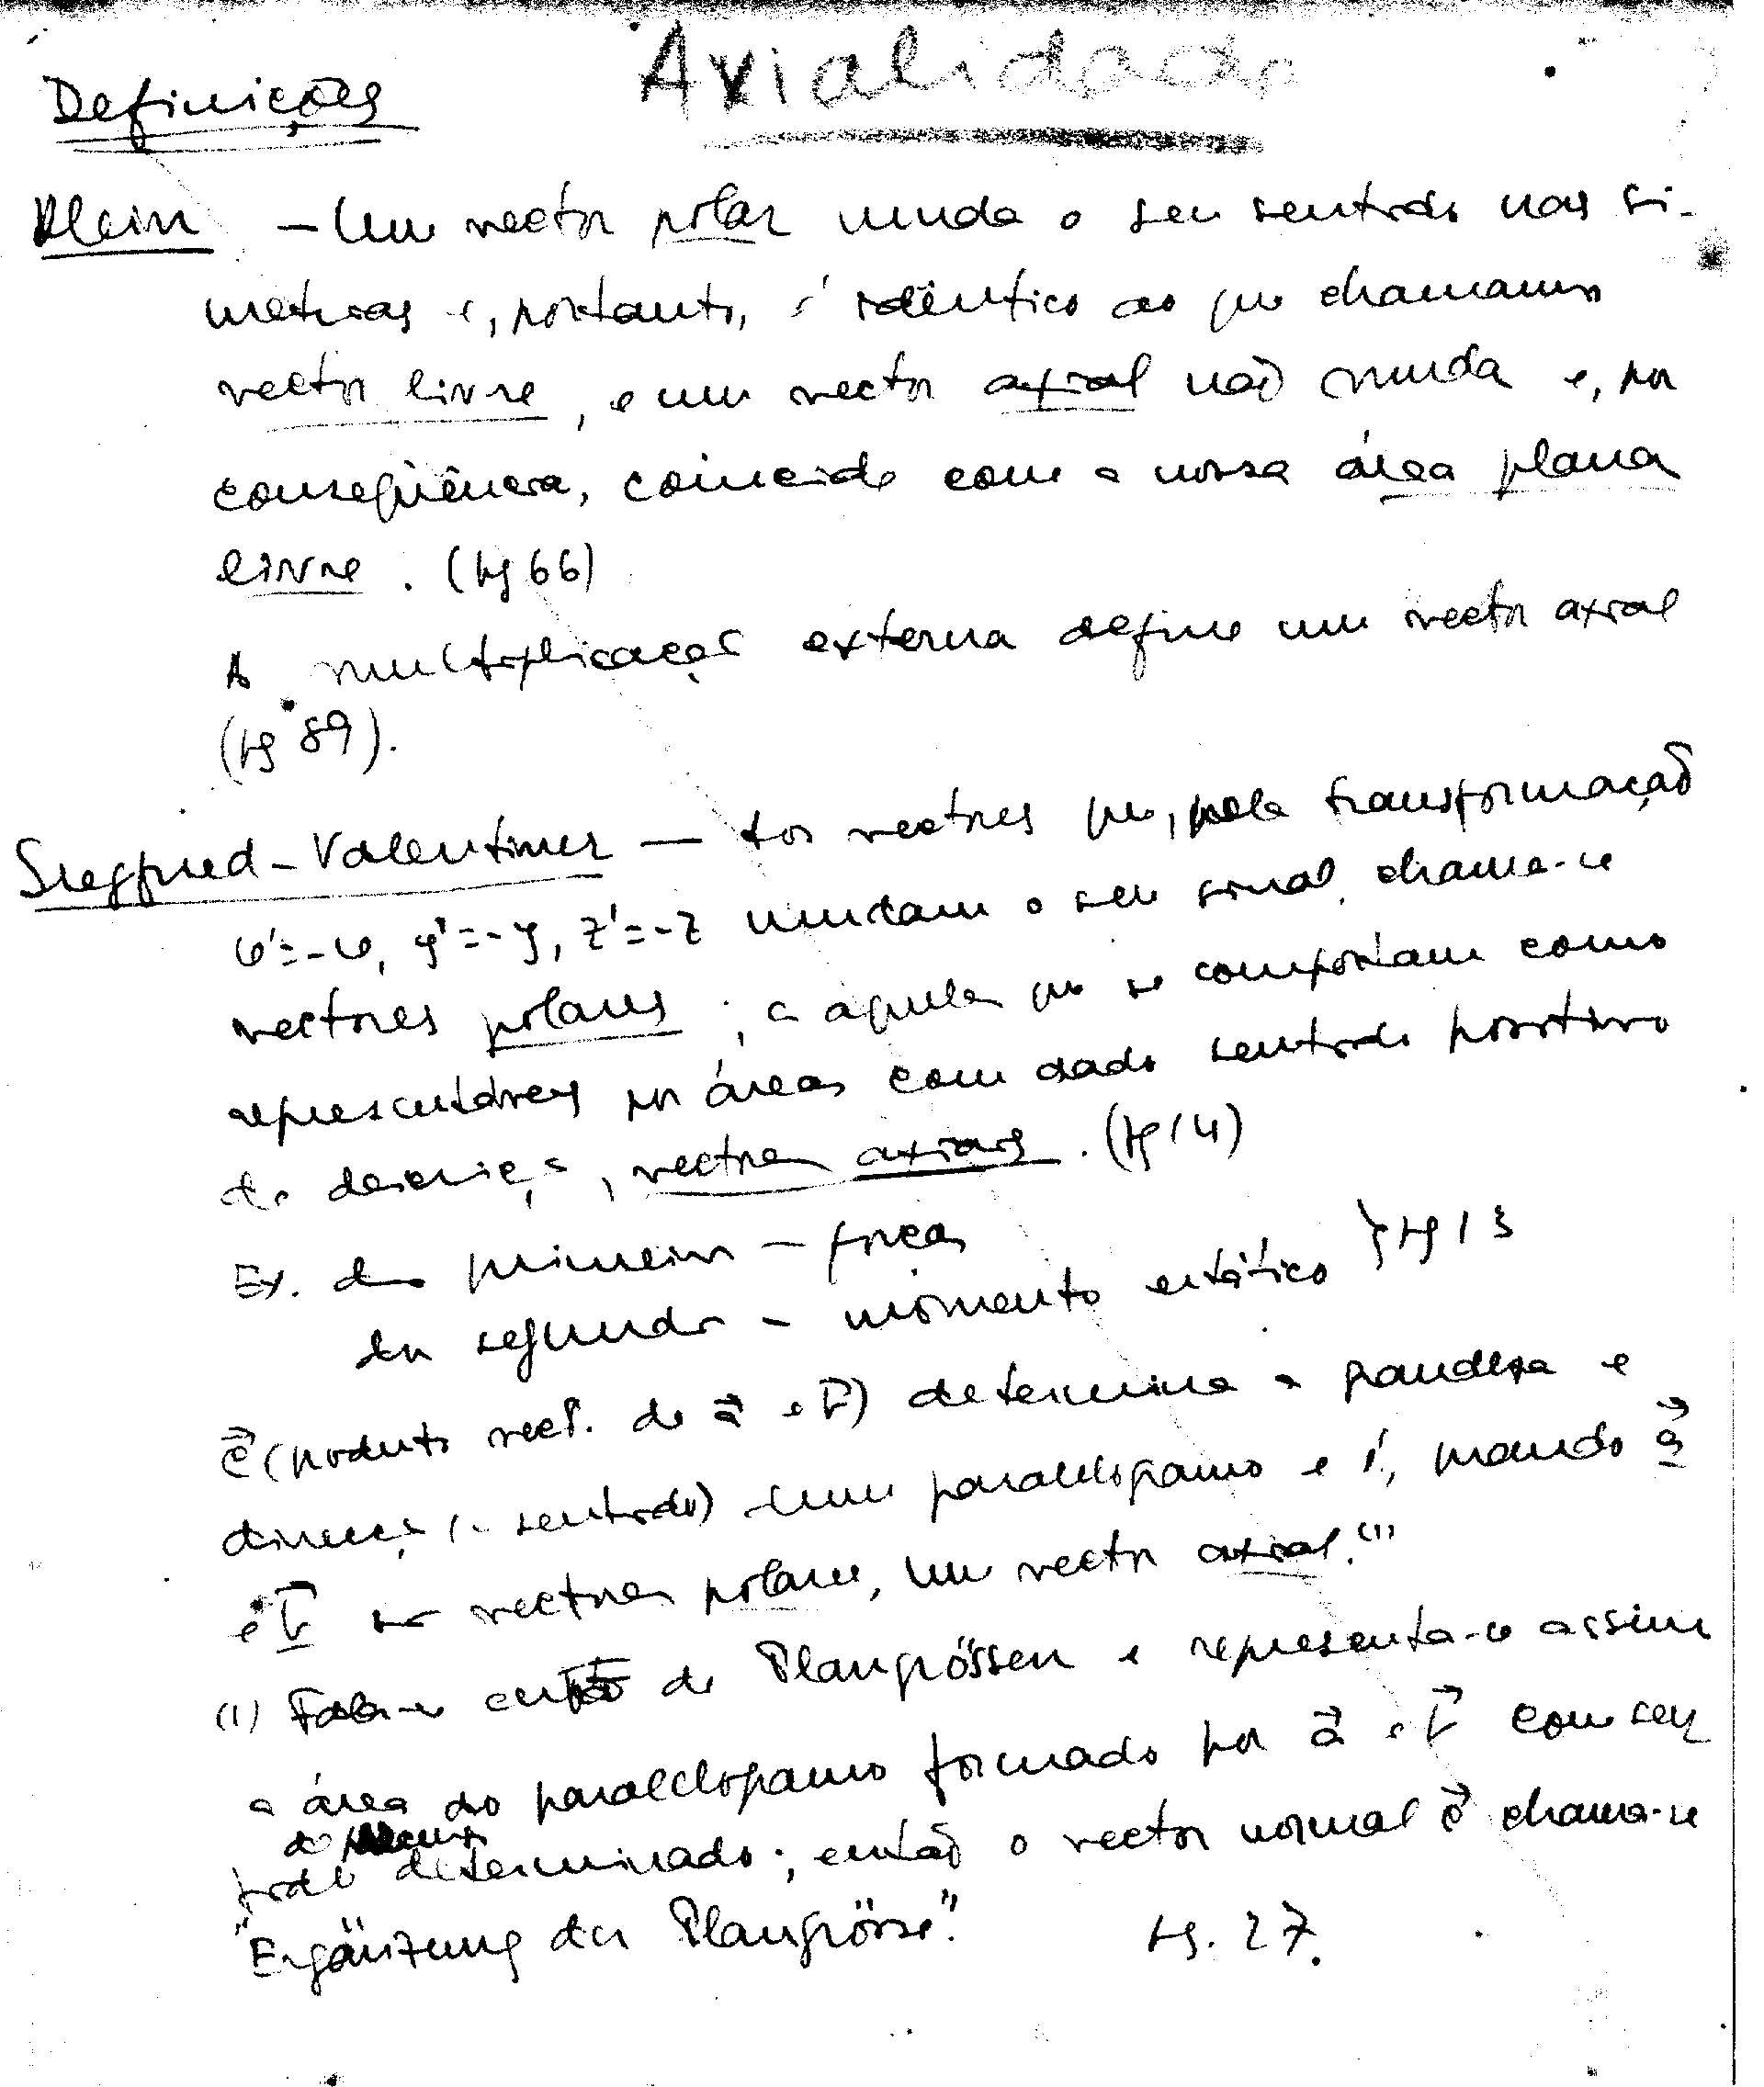 Axialidade
Definições
Klein - Um vector polar muda o seu sentido nas si-
metrias e, portanto, é idêntico ao que chamamos
vector livre, e um vector axial não muda e, por
conseqüência, coincide com a nossa área plana
livre. (pg 66)
A multiplicação externa define um vector axial
(pg 89).
Siegfried-Valentiner — Os vectores que, pela transformação
x'=-x, y'=-y, z'=-z mudam o seu sinal, chama-se
vectores polares; a aqueles que se comportam como
representáveis por áreas com dado sentido positivo
de descrição, vectores axiais. (pg 14)
Ex. do primeiro - forças
do segundo - momento estático } pg 13
c⃗ (produto vect. de a⃗ e b⃗) determina a grandeza e
direcção (e sentido) um paralelogramo e é, quando a⃗
e b⃗ são vectores polares, um vector axial.(1)
(1) Fala-se então de Plangrössen e representa-se assim
a área do paralelogramo formado por a⃗ e b⃗ com seu
determinado; então o vector normal c⃗ chama-se
"Ergänzung der Plangrösse". pg. 27.